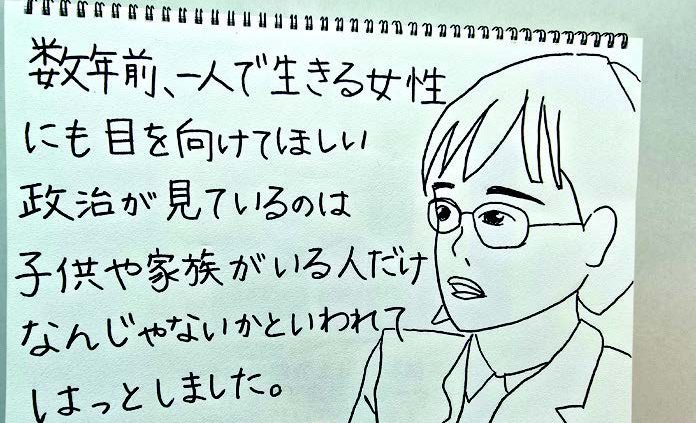 数年前、一人で生きる女性
にも目を向けてほしい
政治が見ているのは
子供や家族がいる人だけ
なんじゃないかといわれて
はっとしました。